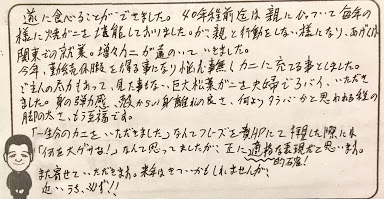 遂に食べることができました。40年程前迄は親にくっついて毎年の
様に焼ガニを堪能しておりました。が、親と行動をしない様になり、あげくは
関東での就業。増々カニが遠のいていきました。
今年、勤続休暇を得る事になり悩む事無くカニに充てる事としました。
ご主人の尽力もあって、見た事ない巨大松葉ガニを夫婦で2ハイ、いただき
ました。身の弾力感、殻からの身離れの良さ、何より タラバかと思われる程の
脚の太さ、もう至福です。
「一生分のカニをいただきました」なんてフレーズを貴HPにて拝見した際には
「何を大ゲサな!」なんて思ってましたが、正に適格な表現だと思います。
的確!
また寄せていただきます。来年はきついかもしれませんが、
近いうち、必ず!!